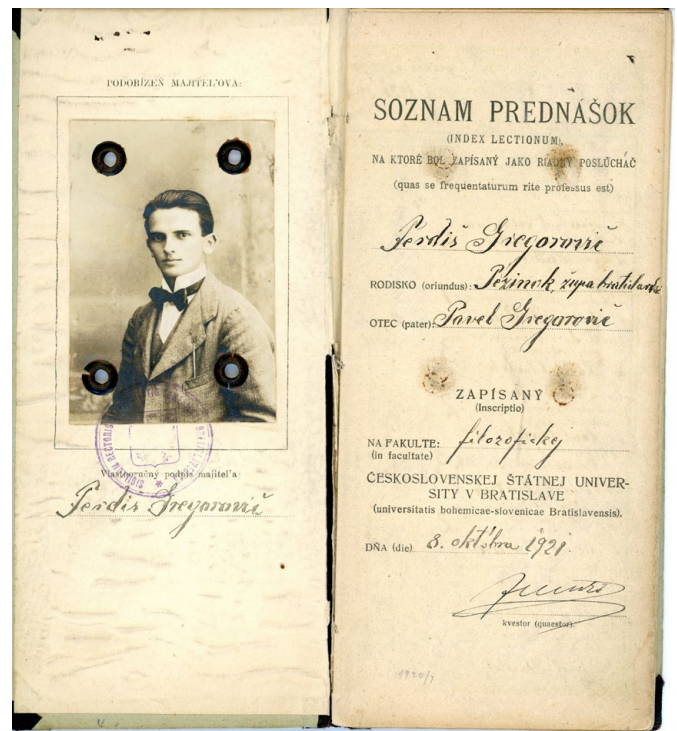 PODOBIZEŇ MAJITEĽOVA:
Vlastnoručný podpis majiteľa:
Ferdiš Gregorovič
SOZNAM PREDNÁŠOK
(INDEX LECTIONUM),
NA KTORÉ BOL ZAPÍSANÝ JAKO RIADNY POSLÚCHÁČ
(quas se frequentaturum rite professus est)
Ferdiš Gregorovič
RODISKO (oriundus): Pezinok, župa bratislavská
OTEC (pater): Pavel Gregorovič
ZAPÍSANÝ
(Inscriptio)
NA FAKULTE: filozofickej
(in facultate)
ČESKOSLOVENSKEJ ŠTÁTNEJ UNIVER-
SITY V BRATISLAVE
(universitatis bohemicae-slovenicae Bratislavensis).
DŇA (die) 8. októbra 1921.
kvestor (quaestor).